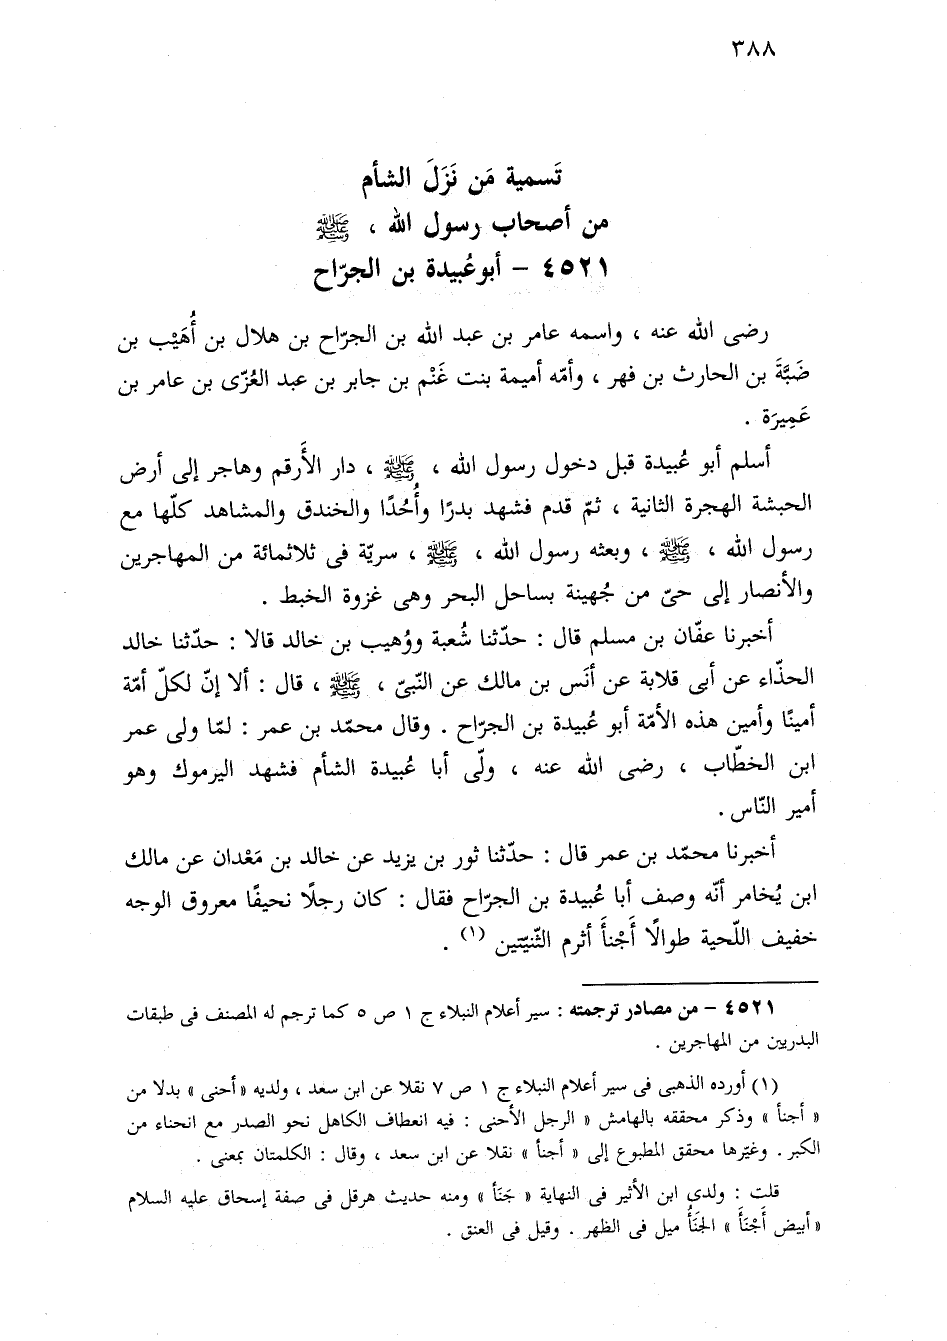 ٣٨٨
تَسمية مَن نَزَلَ الشأم
من أصحاب رسول الله ، ﷺ
٤٥٢١ – أبو عُبيدة بن الجرّاح
رضى الله عنه ، واسمه عامر بن عبد الله بن الجرّاح بن هلال بن أُهَيْب بن
ضَبَّةَ بن الحارث بن فهر ، وأمّه أميمة بنت غَنْم بن جابر بن عبد العُزّى بن عامر بن
عَمِيرَة .
أسلم أبو عُبيدة قبل دخول رسول الله ، ﷺ ، دار الأَرقم وهاجر إلى أرض
الحبشة الهجرة الثانية ، ثمّ قدم فشهد بدرًا وأُحُدًا والخندق والمشاهد كلّها مع
رسول الله ، ﷺ ، وبعثه رسول الله ، ﷺ ، سريّة فى ثلاثمائة من المهاجرين
والأنصار إلى حىّ من جُهينة بساحل البحر وهى غزوة الخبط .
أخبرنا عفّان بن مسلم قال : حدّثنا شُعبة ووُهيب بن خالد قالا : حدّثنا خالد
الحذّاء عن أبى قلابة عن أنَس بن مالك عن النّبىّ ، ﷺ ، قال : ألا إنّ لكلّ أمّة
أمينًا وأمين هذه الأمّة أبو عُبيدة بن الجرّاح . وقال محمّد بن عمر : لمّا ولى عمر
ابن الخطّاب ، رضى الله عنه ، ولّى أبا عُبيدة الشأم فشهد اليرموك وهو
أمير النّاس .
أخبرنا محمّد بن عمر قال : حدّثنا ثور بن يزيد عن خالد بن مَعْدان عن مالك
ابن يُخامر أنّه وصف أبا عُبيدة بن الجرّاح فقال : كان رجلًا نحيفًا معروق الوجه
خفيف اللّحية طوالًا أَجْنأَ أثرم الثّنيّتين (١) .
٤٥٢١ – من مصادر ترجمته : سير أعلام النبلاء ج ١ ص ٥ كما ترجم له المصنف فى طبقات
البدريين من المهاجرين .
(١) أورده الذهبى فى سير أعلام النبلاء ج ١ ص ٧ نقلا عن ابن سعد ، ولديه «أحنى» بدلا من
« أجنأ » وذكر محققه بالهامش « الرجل الأحنى : فيه انعطاف الكاهل نحو الصدر مع انحناء من
الكبر . وغيّرها محقق المطبوع إلى « أجنأ » نقلا عن ابن سعد ، وقال : الكلمتان بمعنى .
قلت : ولدى ابن الأثير فى النهاية « جَنَأ » ومنه حديث هرقل فى صفة إسحاق عليه السلام
«أبيض أَجْنَأَ» الجَنَأُ ميل فى الظهر . وقيل فى العنق .